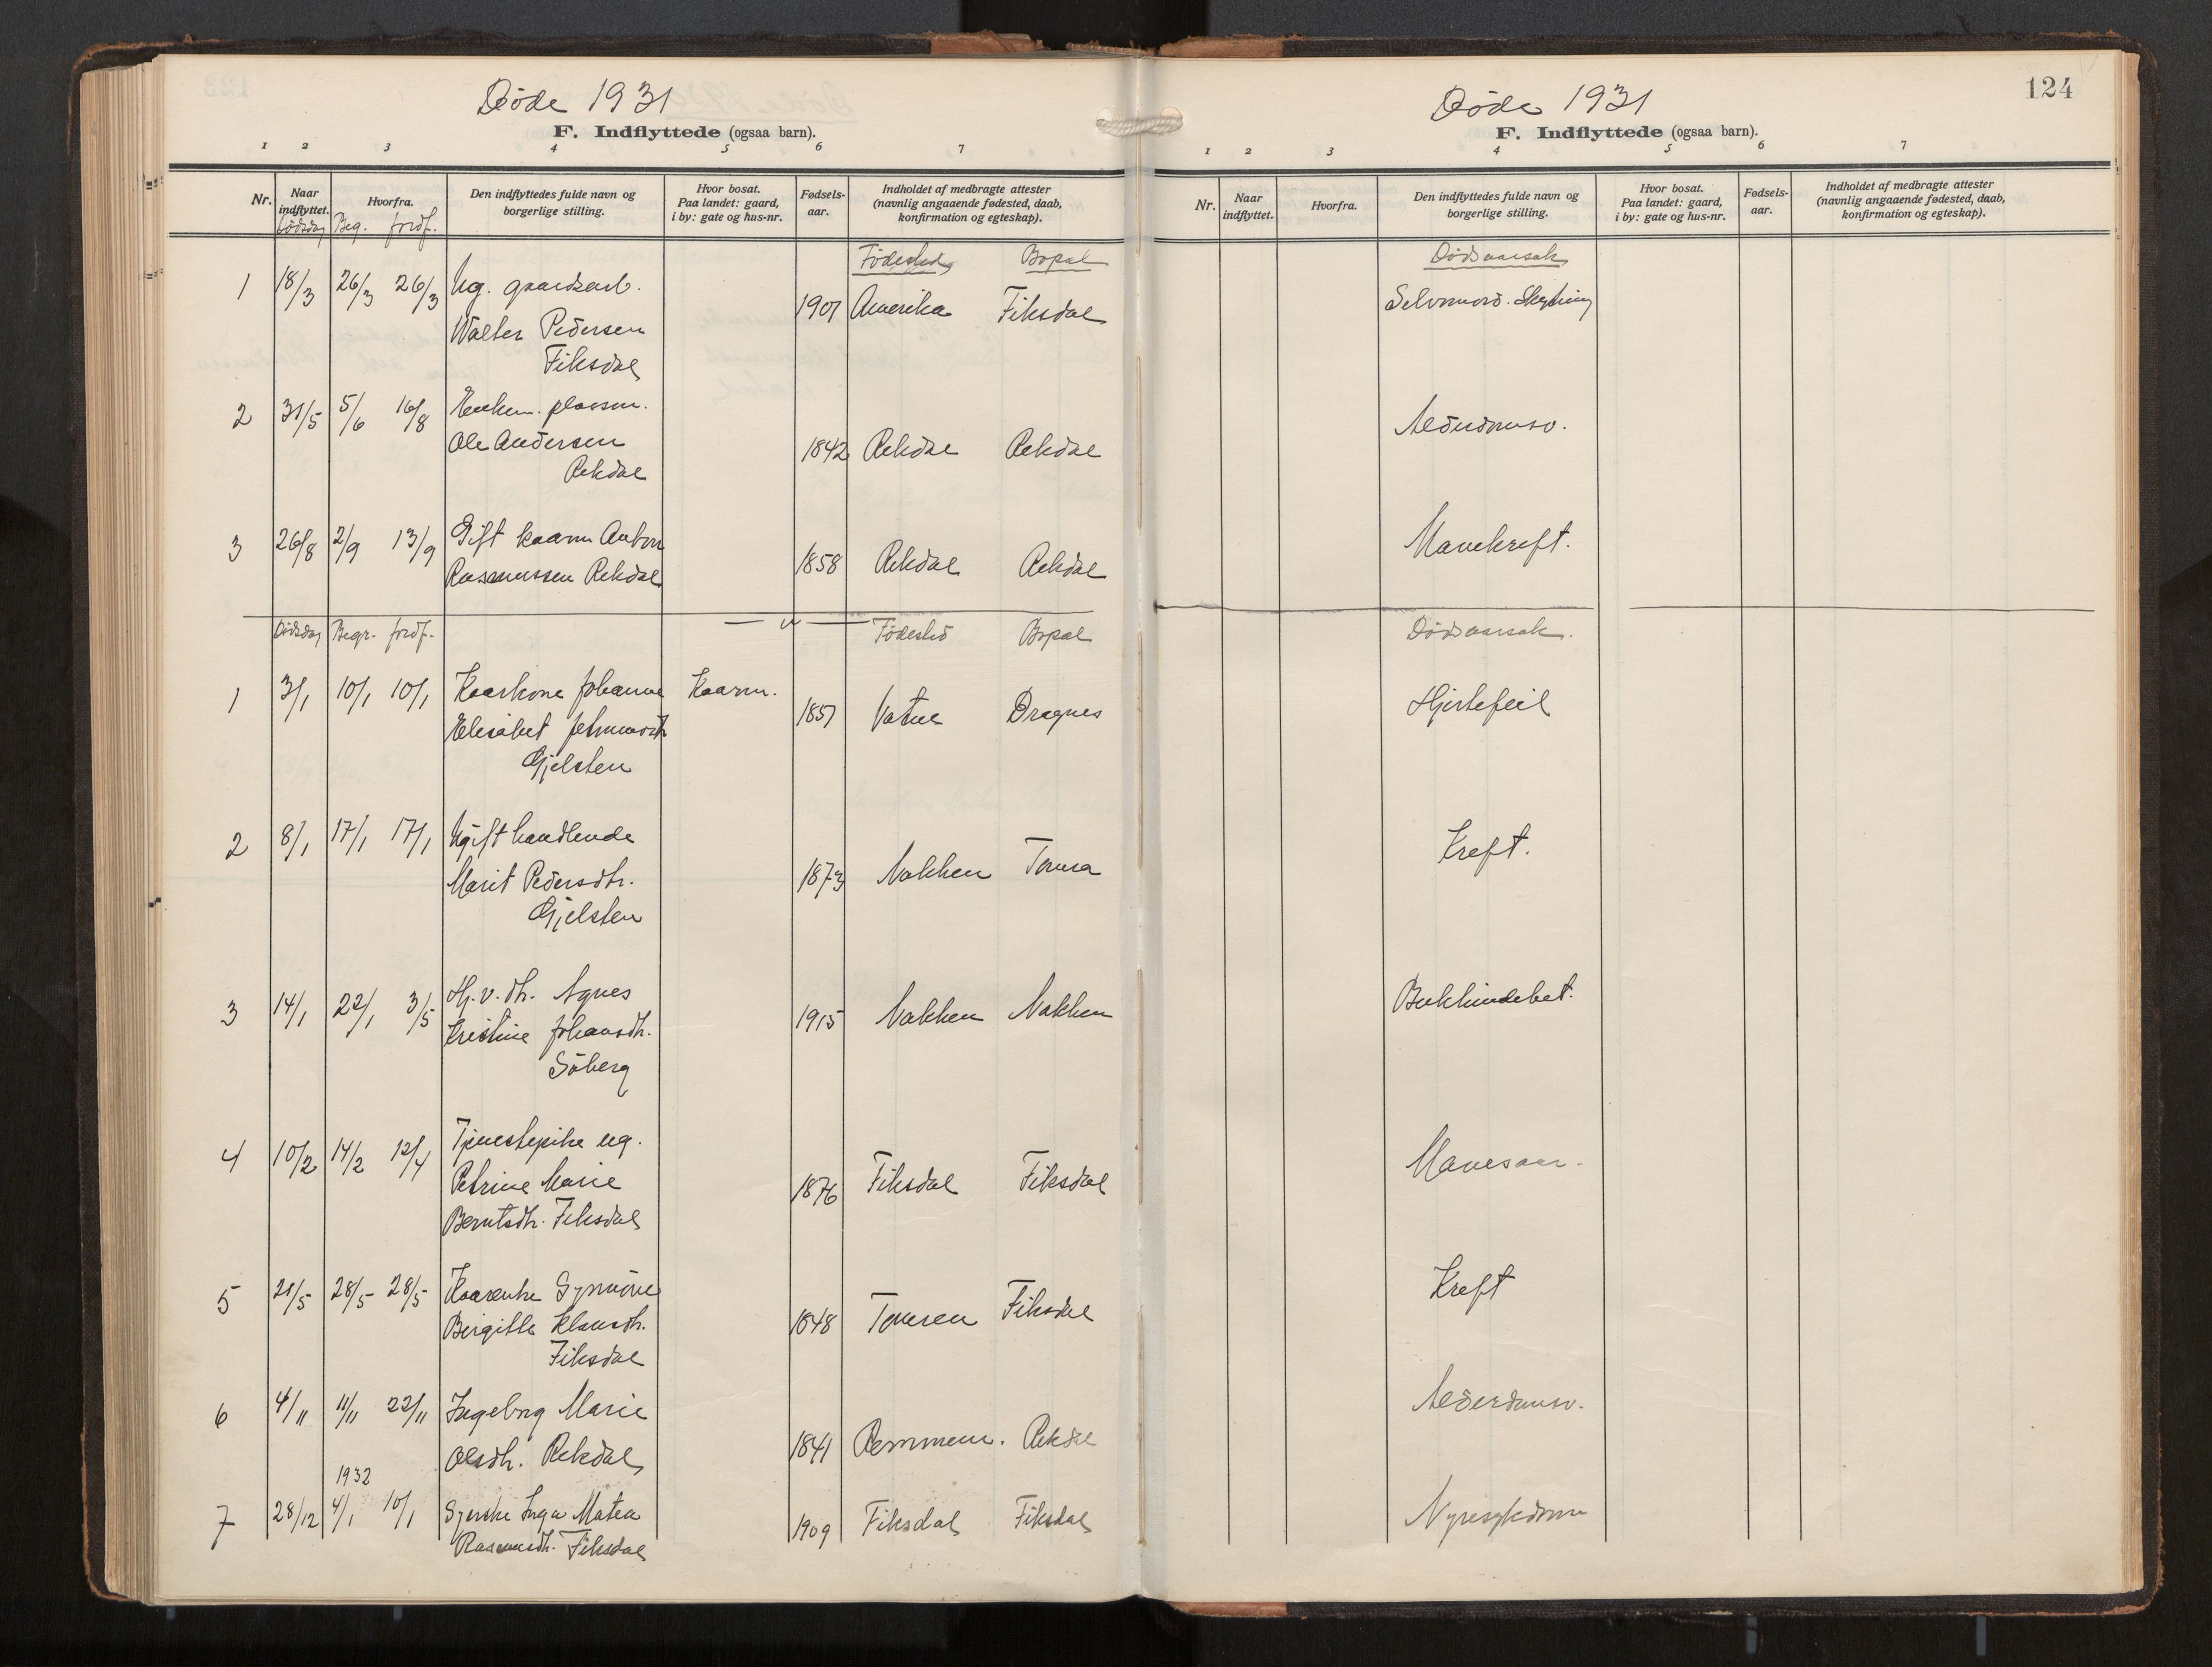 Døde 1931
F. Indflyttede (ogsaa barn).
1 2 3 4 5 6 7
Nr. Naar indflyttet. Hvorfra. Den indflyttedes fulde navn og borgerlige stilling. Hvor bosat. Paa landet: gaard, i by: gate og hus-nr. Fødsels-aar. Indholdet af medbragte attester (navnlig angaaende fødested, daab, konfirmation og egteskap).
Dødsdag Beg. jordf.
Fødested Bopæl
1 18/3 26/3 26/3 Ug. gaardsarb. 1907 Amerika Fiksdal
Walter Pedersen
Fiksdal
2 31/5 5/6 16/8 Enkem. plassm.
Ole Andersen 1842 Rekdal Rekdal
Rekdal
3 26/8 2/9 13/9 Gift kaarm Anton
Rasmussen Rekdal 1858 Rekdal Rekdal
Dødsdag Begr. jordf. Fødested Bopæl
1 3/1 10/1 10/1 Kaarkone Johanne Kaarm.
Elisabet 1857 Vatne Dragnes
Gjelsten
2 8/1 17/1 17/1 Ugift handlende
Marit Pedersdtr. 1873 Nakken Tomra
Gjelsten
3 14/1 22/1 3/5 Hj.v. dtr. Agnes
Kristine Johansdtr. 1915 Nakken Nakken
Søberg
4 10/2 14/2 12/4 Tjenestepike ug.
Petrine Marie 1876 Fiksdal Fiksdal
Berntsdtr. Fiksdal
5 21/5 28/5 28/5 Kaarenke Synnøve
Birgitte Klausdtr. 1848 Tomren Fiksdal
Fiksdal
6 4/11 11/11 22/11 Ingeborg Marie
Olsdtr. Rekdal 1841 Remmem. Rekdal
1932
7 28/12 4/1 10/1 Syerske Inga Matea 1909 Fiksdal Fiksdal
Rasmusdtr. Fiksdal
124
Døde 1931
F. Indflyttede (ogsaa barn).
1 2 3 4 5 6 7
Nr. Naar indflyttet. Hvorfra. Den indflyttedes fulde navn og borgerlige stilling. Hvor bosat. Paa landet: gaard, i by: gate og hus-nr. Fødsels-aar. Indholdet af medbragte attester (navnlig angaaende fødested, daab, konfirmation og egteskap).
Dødsaarsak
Selvmord. Skytning
Alderdomsv.
Mavekreft.
Dødsaarsak.
Hjertefeil
Kreft.
Bukhindebet.
Mavesaar.
Kreft
Alderdomsv.
Nyresykdom